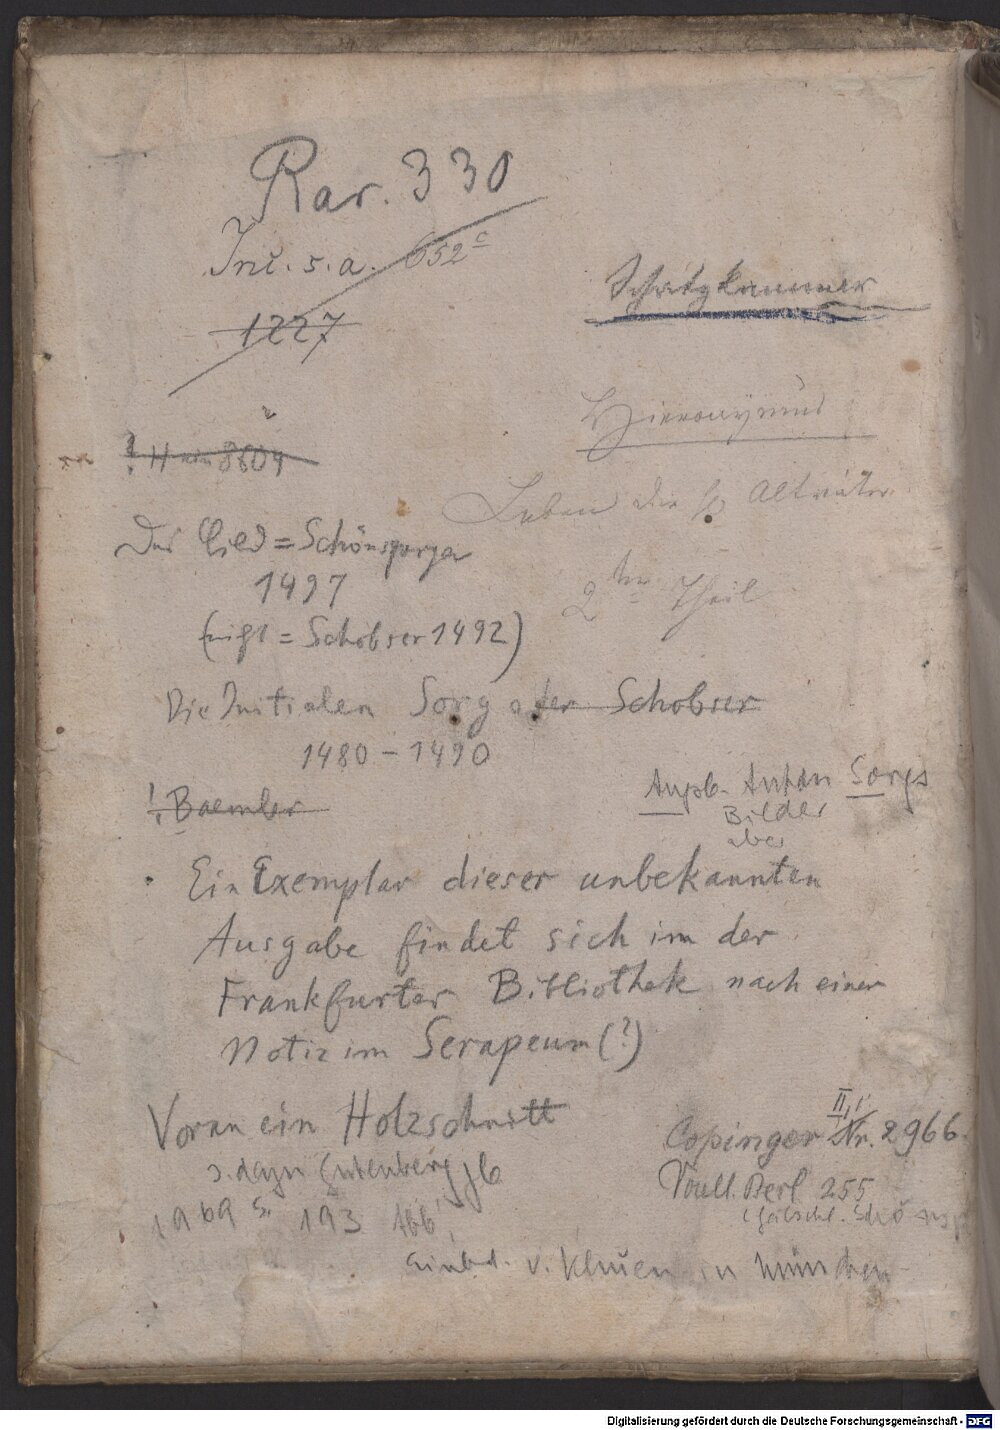 Rar. 330
Inc. s. a. 652 c
Schatzkammer
1227
Hieronymus
? H 8604
Leben der Altväter
Das Bild = Schönsperger
1497
2ter Theil
(nicht = Schobser 1492)
Die Initialen Sorg oder Schobser
1480 - 1490
! Baemler
Augsb. Anton Sorgs
Bilder
aber
Ein Exemplar dieser unbekannten
Ausgabe findet sich in der
Frankfurter Bibliothek nach einer
Notiz im Serapeum (?)
Voran ein Holzschnitt
s. dazu Gutenberg Jb
1969 S. 193 Abb.
Copinger II, 1 Nr. 2966.
Voull. Berl 255
Einbd. v. in München
Digitalisierung gefördert durch die Deutsche Forschungsgemeinschaft - DFG